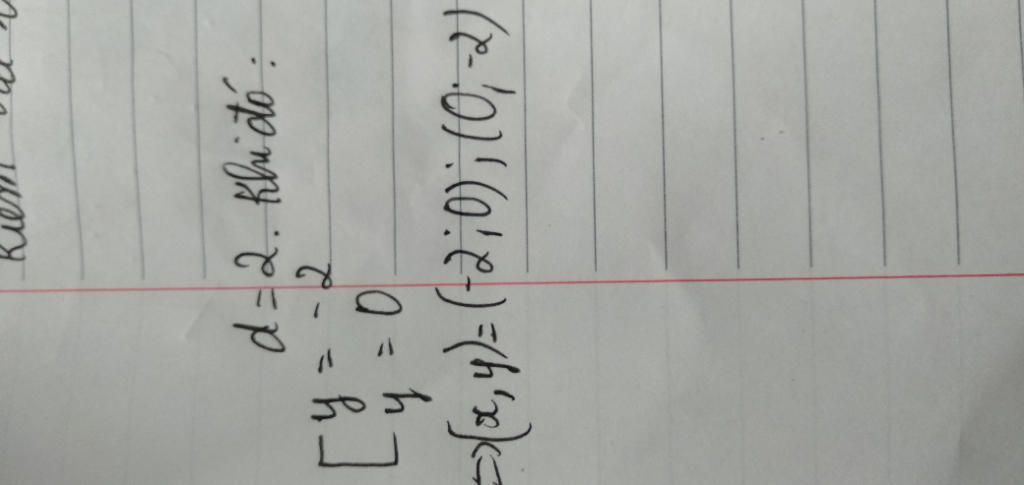 d = 2. Khi đó:
[ y = -2
y = 0
=> (x, y) = (-2; 0); (0; -2)